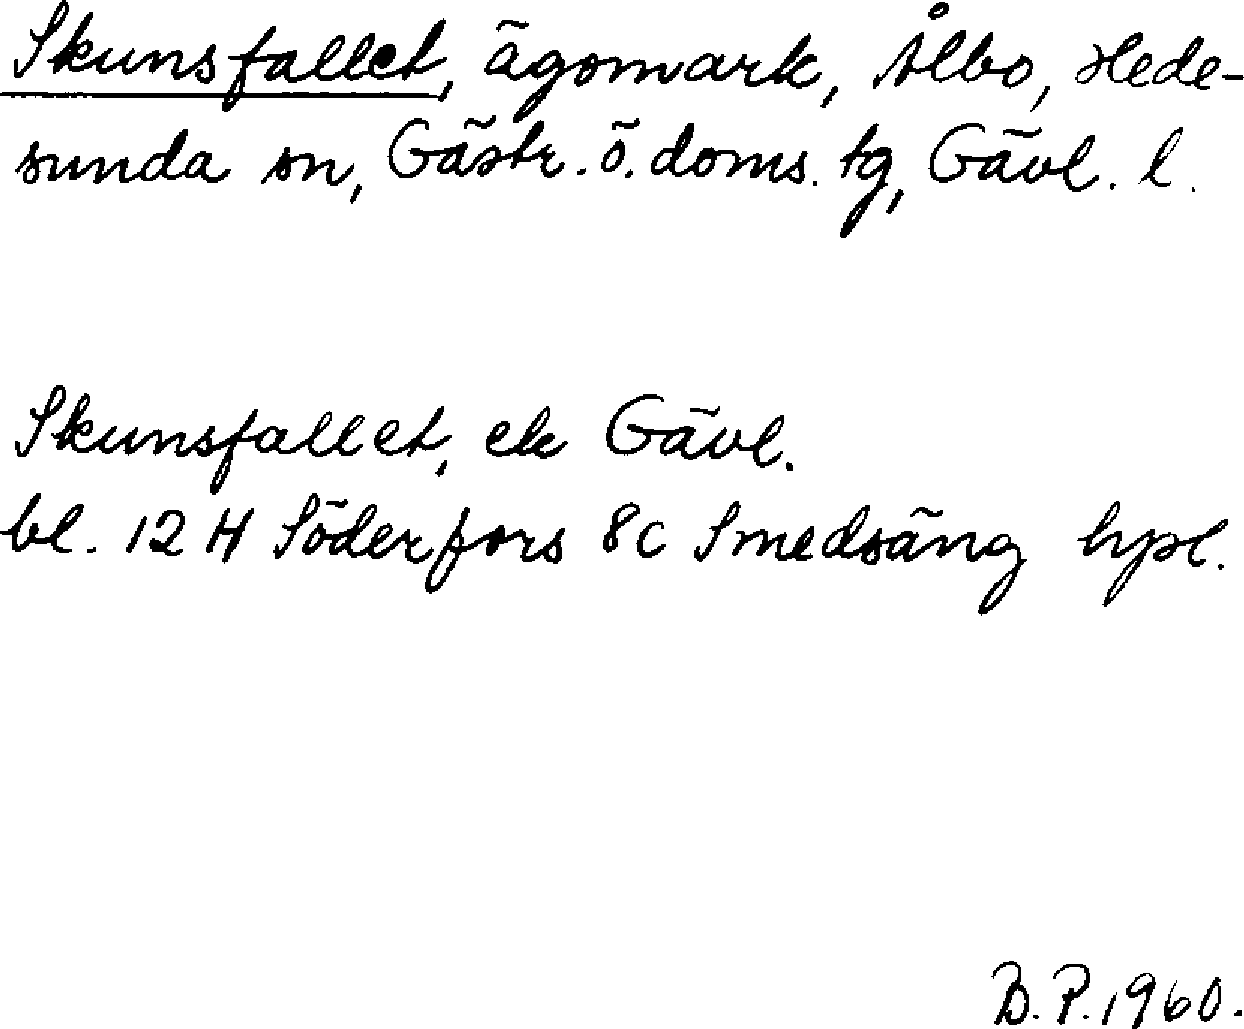 Skunsfallet, ägomark, Ålbo, Hede-
sunda sn, Gästr. ö. doms. tg, Gävl. l.
Skunsfallet, ek Gävl.
bl. 12 H Söderfors 8c Smedsäng hpl.
B. P. 1960.